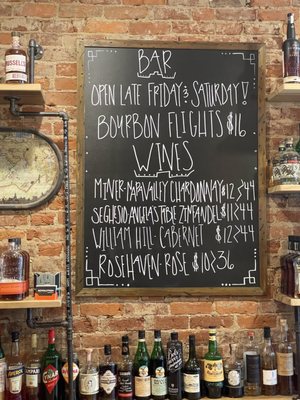 BAR
OPEN LATE FRIDAY & SATURDAY!
BOURBON FLIGHTS $16
WINES
MINER-NAPA VALLEY CHARDONNAY $12>44
SEGHESIO ANGELAS TABLE ZINFANDEL $11>44
WILLIAM HILL-CABERNET $12>44
ROSEHAVEN-ROSE $10>36
RUSSELL'S